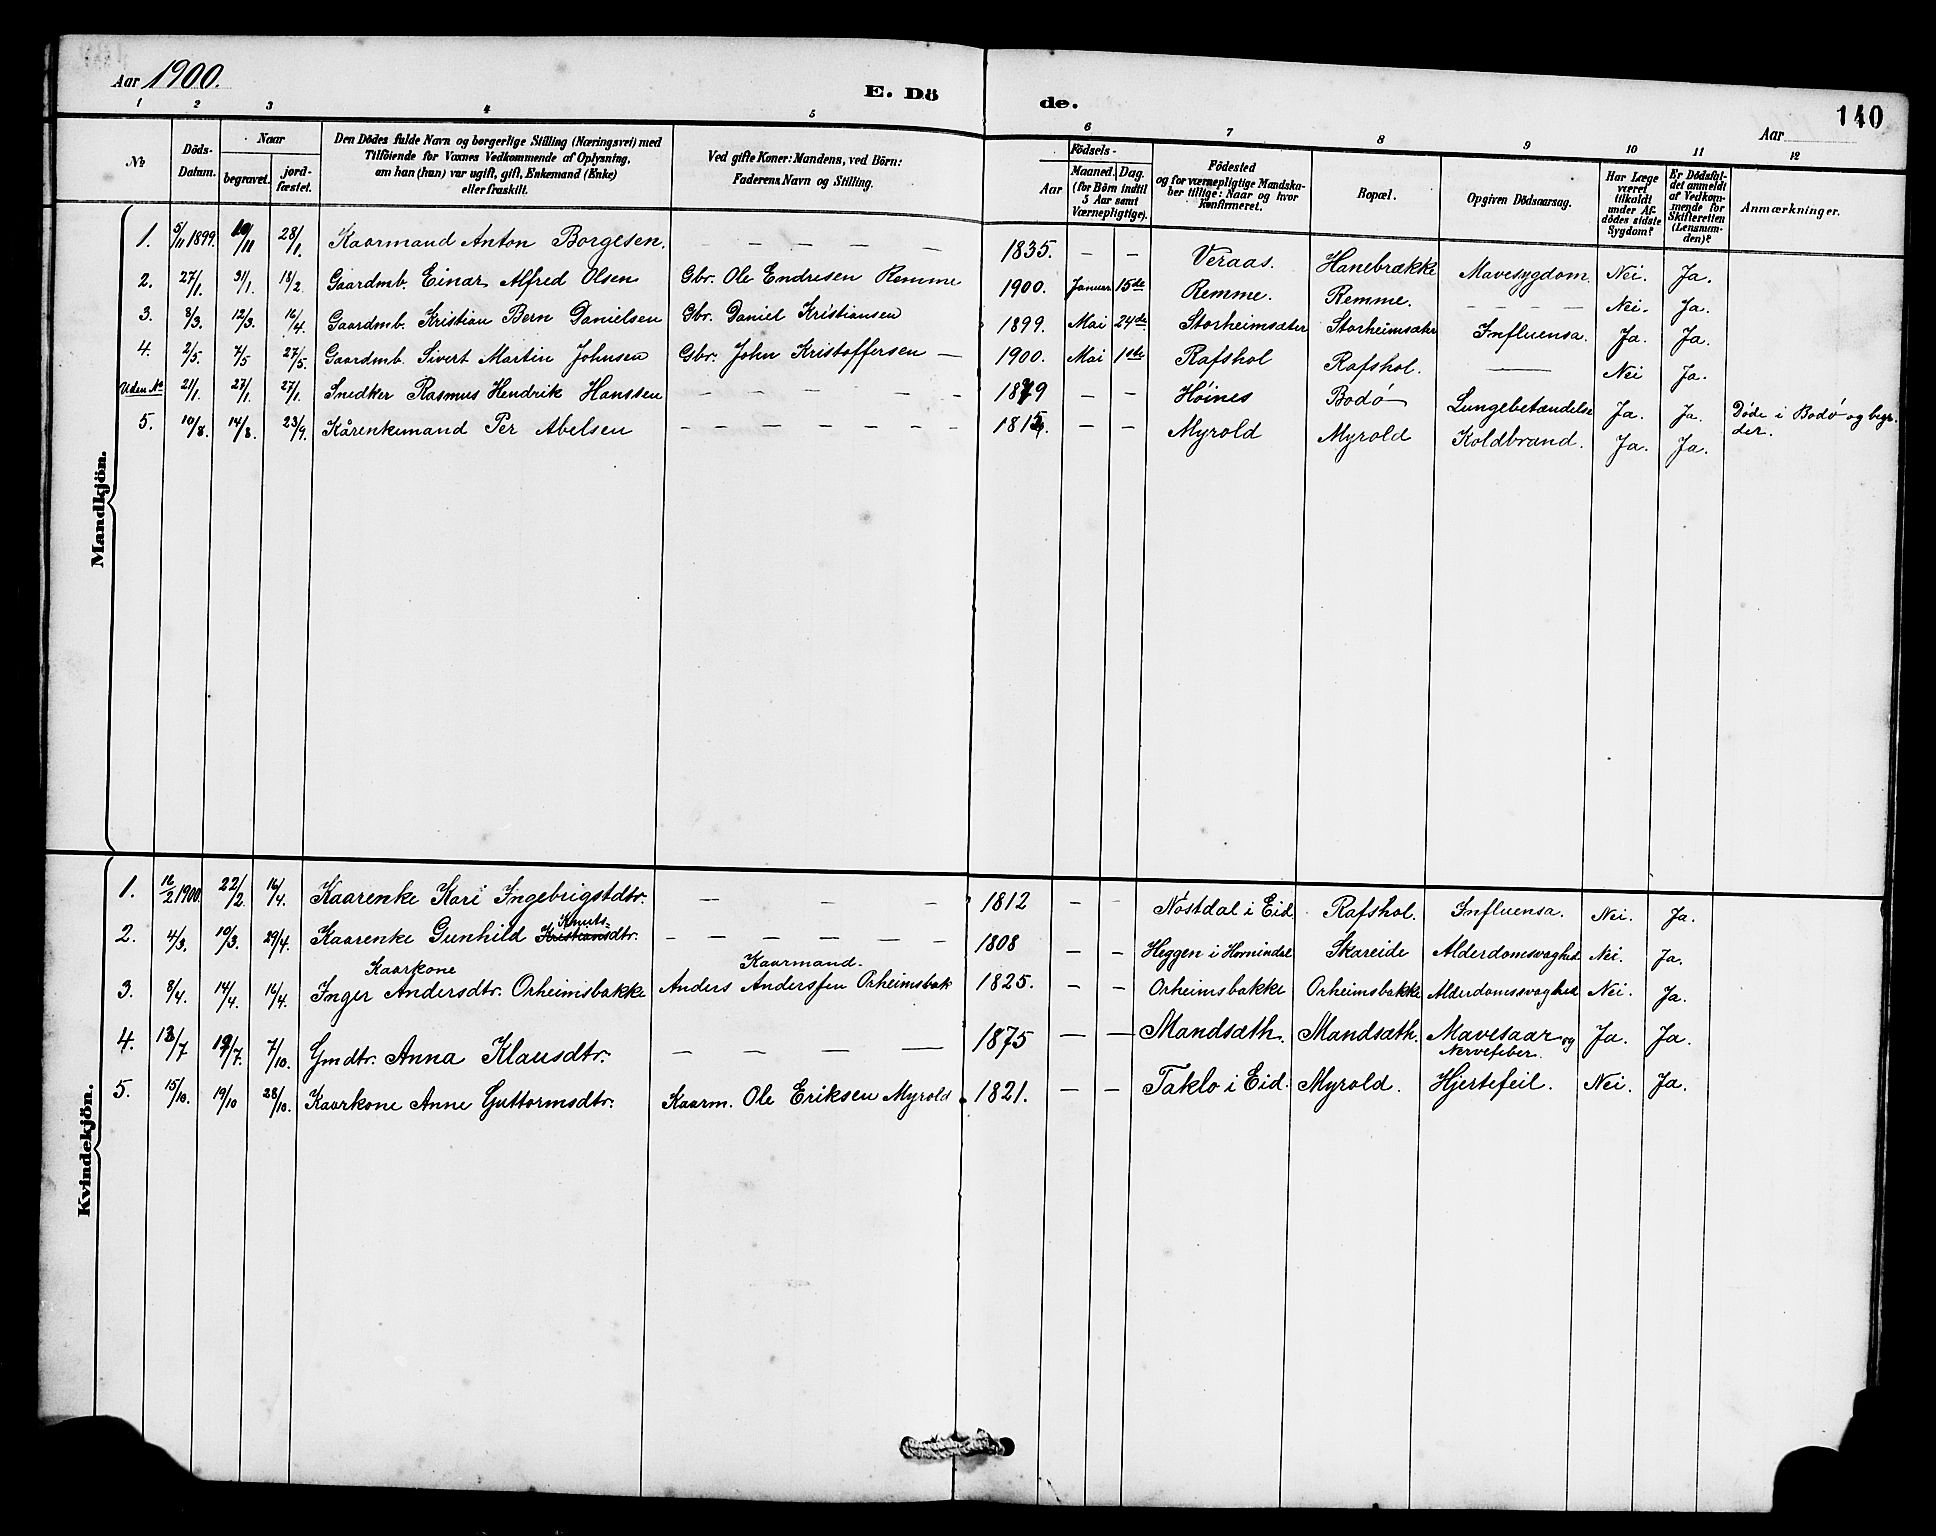 Aar 1900.
E. Dö
de.
140
Aar
1 2 3 4 5 6 7 8 9 10 11 12
No
Döds-Datum.
Naar
begravet.
jord-fæstet.
Den Dödes fulde Navn og borgerlige Stilling (Næringsvei) med
Tilföiende for Voxnes Vedkommende af Oplysning,
om han (hun) var ugift, gift, Enkemand (Enke)
eller fraskilt.
Ved gifte Koner: Mandens, ved Börn:
Faderens Navn og Stilling.
Födsels-
Aar
Maaned. Dag.
(for Börn indtil
5 Aar samt
Værnepligtige).
Födested
og for værnepligtige Mandska-
ber tillige: Naar og hvor
konfirmeret.
Bopæl.
Opgiven Dödsaarsag.
Har Læge
været
tilkaldt
under Af-
dödes sidste
Sygdom?
Er Dödsfal-
det anmeldt
af Vedkom-
mende for
Skifteretten
(Lensman-
den)?
Anmærkninger.
Mandkjön.
1. 5/11 1899. 10/11 28/1. Kaarmand Anton Borgesen. — — — — — 1835. — — Veraas. Hanebrække Mavesygdom. Nei. Ja.
2. 27/1. 31/1. 18/2. Gaardmb. Einar Alfred Olsen Gbr. Ole Endresen Remme 1900. Januar 15de Remme. Remme. — — — — Nei. Ja.
3. 8/3. 12/3. 16/4. Gaardmb. Kristian Bern Danielsen Gbr. Daniel Kristiansen 1899. Mai 24de Storheimsæter Storheimsæter Influensa. Ja. Ja.
4. 2/5. 7/5 27/5. Gaardmb. Sivert Martin Johnsen Gbr. John Kristoffersen — 1900. Mai 1ste Rafshol Rafshol. — Nei Ja.
Uden No 21/1. 27/1. 27/1. Snedker Rasmus Hendrik Hanssen — — — — — 1879 — — Hóines Bodó Lungebetændelse Ja. Ja. Döde i Bodó og begr.
der.
5. 10/8. 14/8. 23/9. Kårenkemand Per Abelsen — — — — — — — 1815. — — Myrold Myrold Koldbrand. Ja. Ja.
Kvindekjön.
1. 16/2 1900. 22/2. 16/4. Kaarenke Kari Ingebrigstdtr. — — — 1812 — — Nöstdal i Eid Rafshol. Influensa. Nei. Ja.
Knuts-
2. 4/3. 10/3. 29/4. Kaarenke Gunhild Kristiansdtr. — — — — — — 1808 — — Heggen i Hornindal Skareide Alderdomsvaghed Nei. Ja.
Kaarkone Kaarmand.
3. 8/4. 14/4. 16/4. Inger Andersdtr. Orheimsbakke Anders Anderssen Orheimsbak 1825. — — Orheimsbakke Orheimsbakke Alderdomssvaghed Nei. Ja.
4. 13/7 19/7. 7/10. Gmdtr. Anna Klausdtr. — — — — 1875 — — Mandsæth. Mandsæth. Mavesaar og Ja. Ja.
Nervefeber.
5. 15/10. 19/10 28/10. Kaarkone Anne Guttormsdtr. Kaarm. Ole Eriksen Myrold 1821. — — Taklo i Eid. Myrold. Hjertefeil. Nei. Ja.